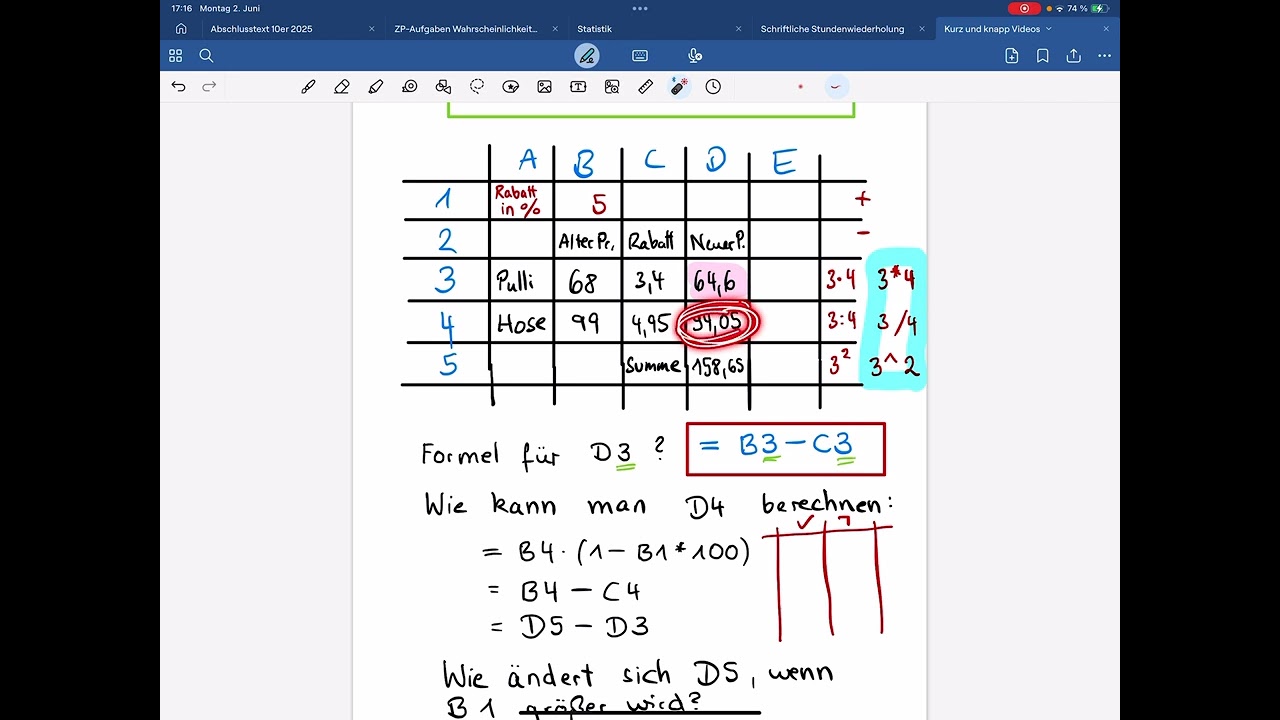 17:16 Montag 2. Juni
74 %
Abschlusstext 10er 2025
ZP-Aufgaben Wahrscheinlichkeit...
Statistik
Schriftliche Stundenwiederholung
Kurz und knapp Videos
A B C D E
1 Rabatt in % 5 +
2 Alter Pr. Rabatt Neuer P. -
3 Pulli 68 3,4 64,6 3·4 3*4
4 Hose 99 4,95 94,05 3:4 3/4
5 Summe 158,65 3² 3^2
Formel für D3 ? = B3 - C3
Wie kann man D4 berechnen:
= B4·(1- B1*100)
= B4 - C4
= D5 - D3
Wie ändert sich D5, wenn
B1 größer wird?